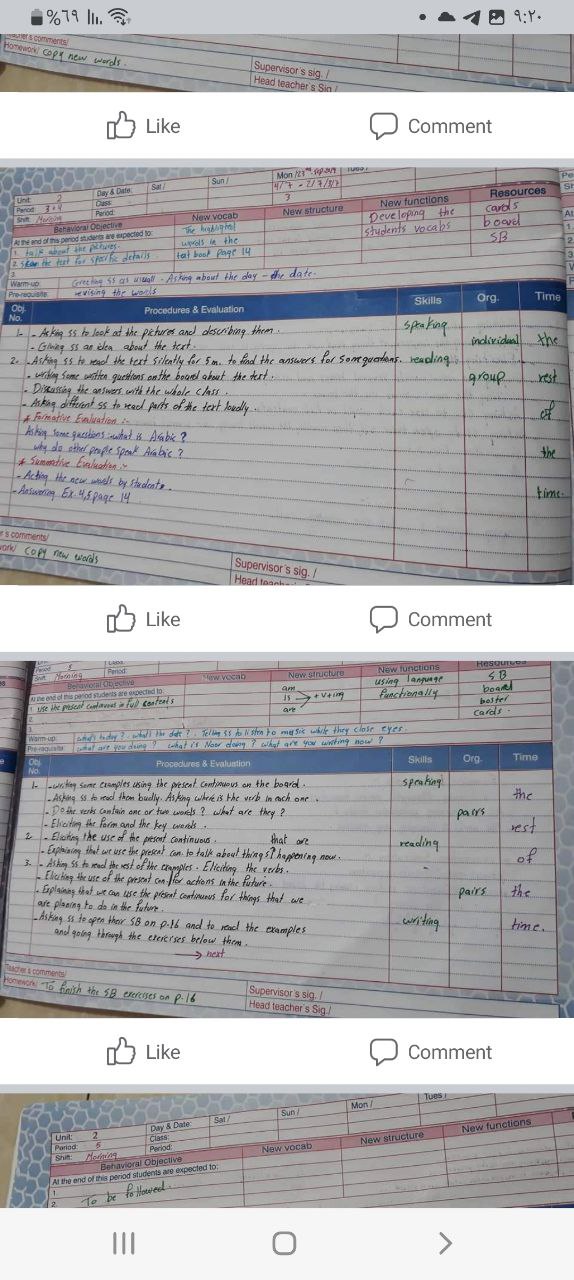 %٦٩
٩:٢٠
Teacher's comments/
Homework/ copy new words.
Supervisor's sig. /
Head teacher's Sig /
Like
Comment
Unit: 2
Day & Date:
Sat/
Sun/
Mon /23
Tues/
Period: 3+4
Class:
Shift: Morning
Period:
3
Behavioral Objective
New vocab
New structure
New functions
Resources
At the end of this period students are expected to:
1. talk about the pictures.
2. Scan the text for specific details
3.
The highlighted
words in the
text book page 14
Developing the
students vocabs
cards
board
SB
Warm-up: Greeting SS as usuall - Asking about the day - the date.
Pre-requisite: revising the words
Obj. No.
Procedures & Evaluation
Skills
Org.
Time
1- - Asking SS to look at the pictures and describing them.
speaking
- Giving SS an idea about the text.
individual
the
2. - Asking SS to read the text silently for 5m. to find the answers for some questions.
reading
- writing some written questions on the board about the text.
group
rest
- Discussing the answers with the whole class.
- Asking different SS to read parts of the text loudly.
of
* Formative Evaluation :-
Asking some questions: what is Arabic ?
why do other people speak Arabic ?
the
* Summative Evaluation :-
- Acting the new words by students.
- Answering Ex. 4,5 page 14
time.
Homework/ copy new words
Supervisor's sig. /
Head teacher's
Like
Comment
Period: 5
Class:
Shift: Morning
Period:
Behavioral Objective
New vocab
New structure
New functions
Resources
At the end of this period students are expected to:
1. Use the present continuous in full contents
2.
3.
am
is → + v+ing
are
using language
functionally
SB
board
boster
cards.
Warm-up: what's today ? what's the date ? . Telling SS to listen to music while they close eyes.
Pre-requisite: what are you doing ? what is Noor doing ? what are you writing now ?
Obj. No.
Procedures & Evaluation
Skills
Org.
Time
1- - writing some examples using the present continuous on the board.
speaking
- Asking SS to read them loudly. Asking where is the verb in each one.
the
- Do the verbs contain one or two words ? what are they ?
pairs
- Eliciting the form and the key words.
rest
2. - Eliciting the use of the present continuous.
- Explaining that we use the present con. to talk about things that are happening now.
reading
of
3. - Asking SS to read the rest of the examples. Eliciting the verbs.
- Eliciting the use of the present con. for actions in the future.
- Explaining that we can use the present continuous for things that we
pairs
the
are planing to do in the future.
- Asking SS to open their SB on p.16 and to read the examples
writing
time.
and going through the exercises below them.
→ next
Teacher's comments/
Homework/ To finish the SB exercises on p.16
Supervisor's sig. /
Head teacher's Sig./
Like
Comment
Unit: 2
Day & Date:
Sat/
Sun/
Mon /
Tues /
Period: 5
Class:
Shift: Morning
Period:
Behavioral Objective
New vocab
New structure
New functions
At the end of this period students are expected to:
1.
2. To be followed.